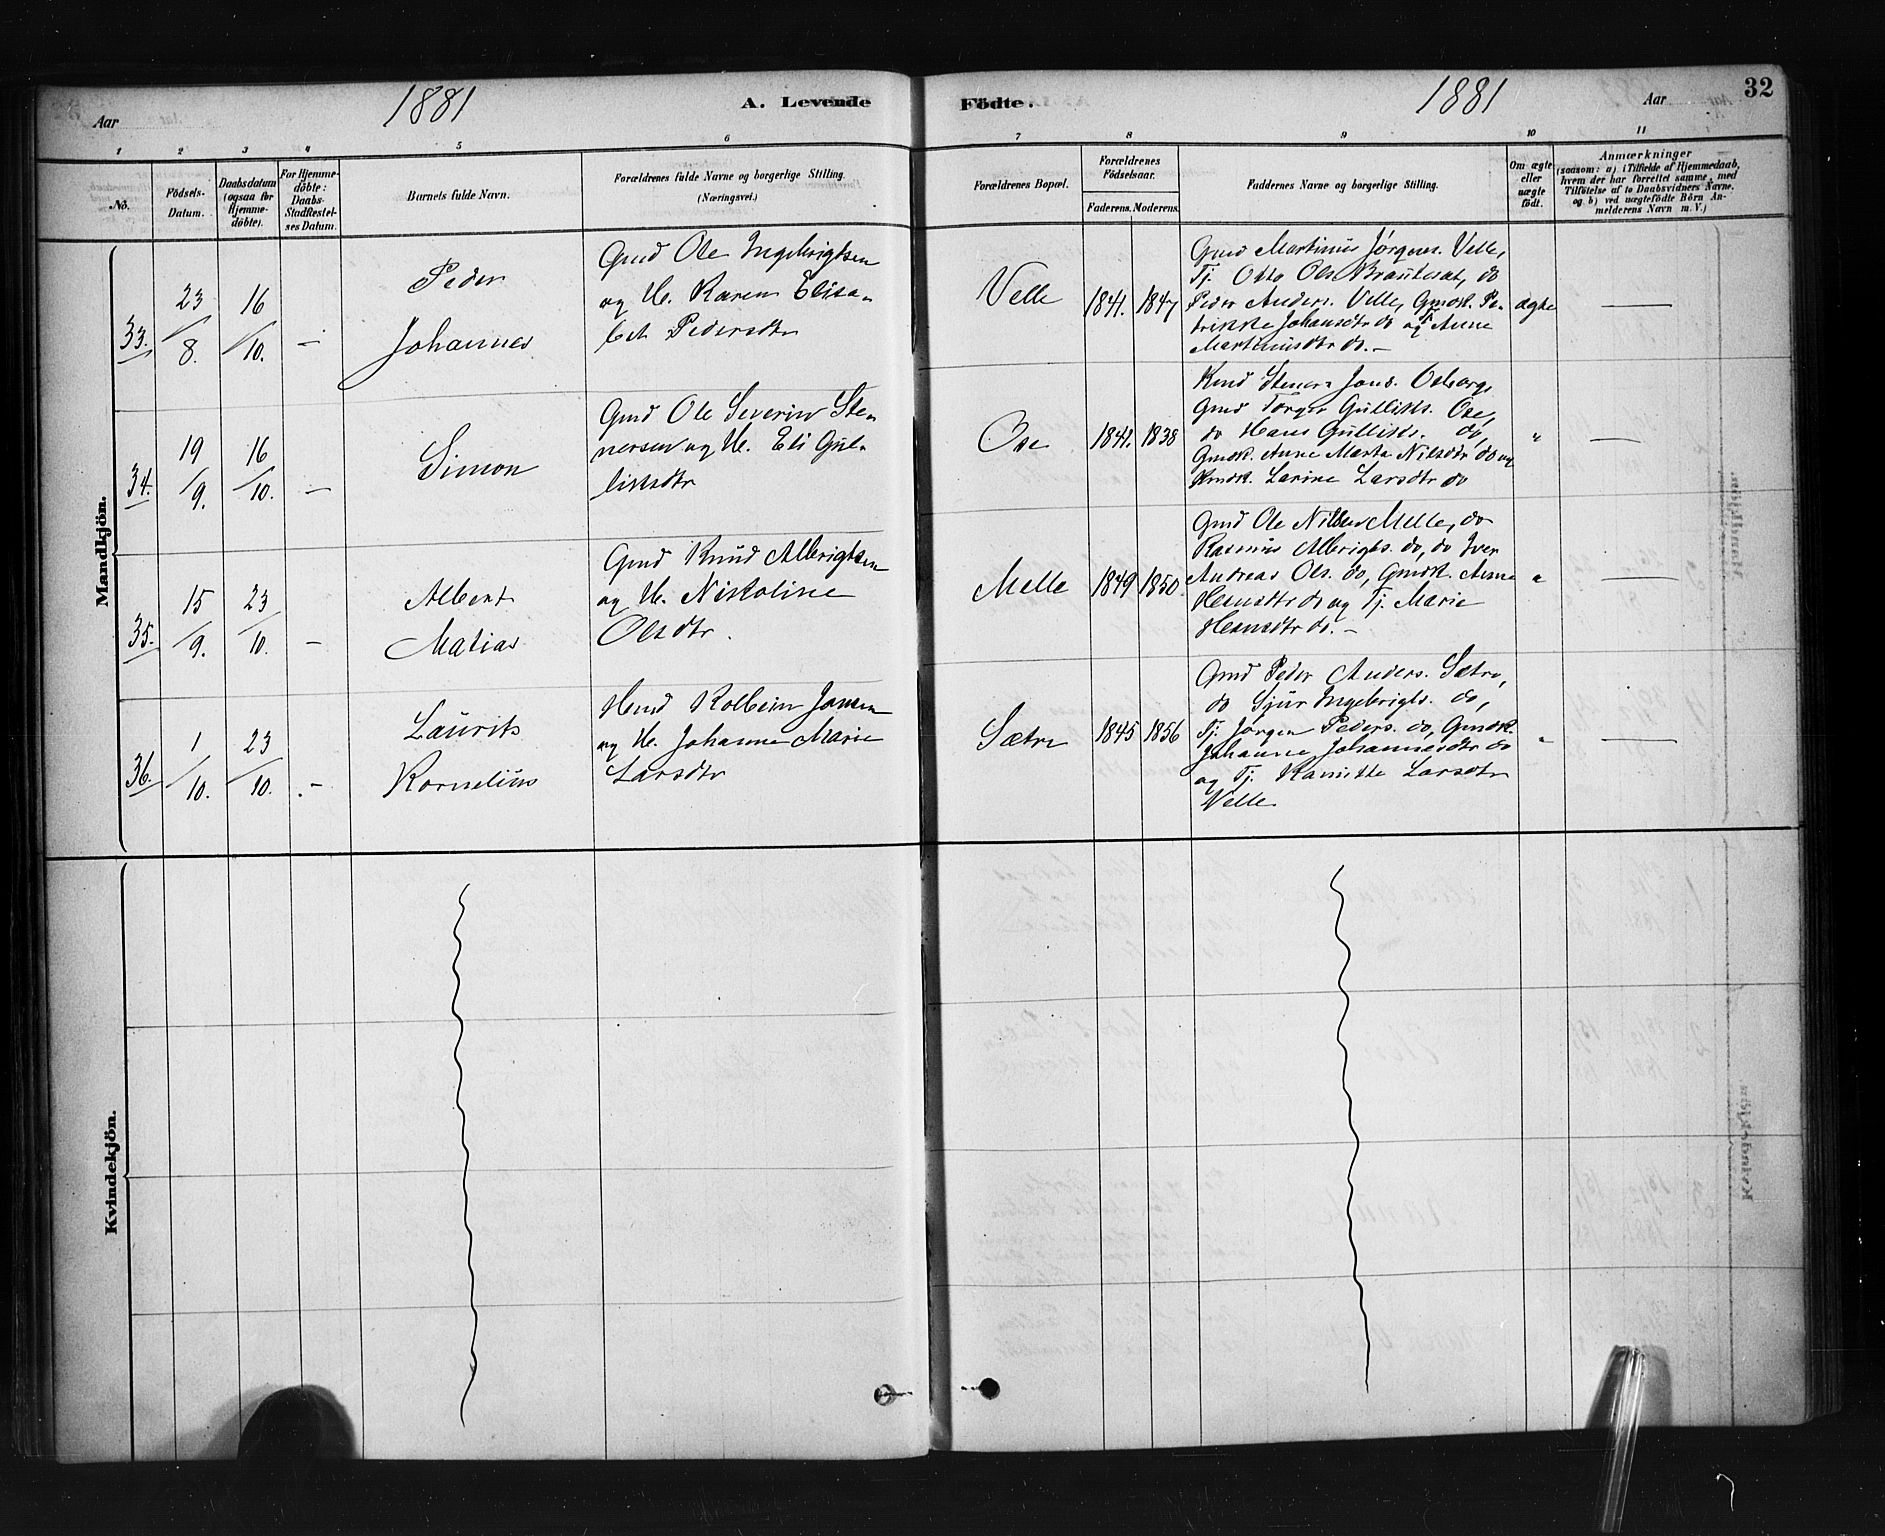 Aar 1881 A. Levende
Födte. 1881 Aar 32
1 2 3 4 5 6
7 8 9 10 11
No.
Födsels-
Datum.
Daabsdatum
(ogsaa for
Hjemme-
döbte).
For Hjemme-
döbte:
Daabs-
Stadfæstel-
ses Datum.
Barnets fulde Navn.
Forældrenes fulde Navne og borgerlige Stilling.
(Næringsvei.)
Forældrenes Bopæl.
Forældrenes
Födselsaar.
Faderens. Moderens.
Faddernes Navne og borgerlige Stilling.
Om ægte
eller
uægte
födt.
Anmærkninger
(saasom: a) i Tilfælde af Hjemmedaab,
hvem der har forrettet samme, med
Tilföielse af to Daabsvidners Navne.
og b) ved uægtefödte Börn An-
melderens Navn m. V.)
Mandkjön.
33. 23/8. 16/10. —
Peder
Johannes
Gmd Ole Ingebrigtsen
og H. Karen Elisa-
bet Pedersdtr
Velle
1841. 1847
Gmd Martinus Jørgens. Velle,
Tj. Otto Ols. Brauteset, do
Peder Anders. Velle, Gmdk. Pe-
trikke Johansdtr do og Tj. Anne
Martinusdtr do. —
ægte —
34. 19/9. 16/10. —
Simon
Gmd Ole Severin Ste-
nersen og H. Eli Gul-
liksdtr
Ose
1841. 1838
Kmd Stener Jons. Osborg,
Gmd Torger Gulliks. Ose,
do Hans Gulliks. do,
Gmdk. Anne Marta Nilsdtr do og
Kmdk. Larine Larsdtr do
" —
35. 15/9. 23/10. —
Albert
Matias
Gmd Knud Albrigtsen
og H. Nikoline
Olsdtr.
Melle
1849 1850.
Gmd Ole Nilsen Melle, do
Rasmus Albrigts. do, do Iver
Andreas Ols. do, Gmdk. Anne
Hansdtr do og Tj. Marie
Hansdtr do. —
" —
36. 1/10. 23/10. —
Laurits
Kornelius
Hmd Kolbein Jonsen
og H. Johanne Marie
Larsdtr
Sætre
1845 1856
Gmd Peder Anders. Sætre,
do Sjur Ingebrigts. do,
Tj. Jørgen Peders. do, Gmdk.
Johanne Johannesdtr do
og Tj. Larsdtr
Velle
" —
Kvindekjön.